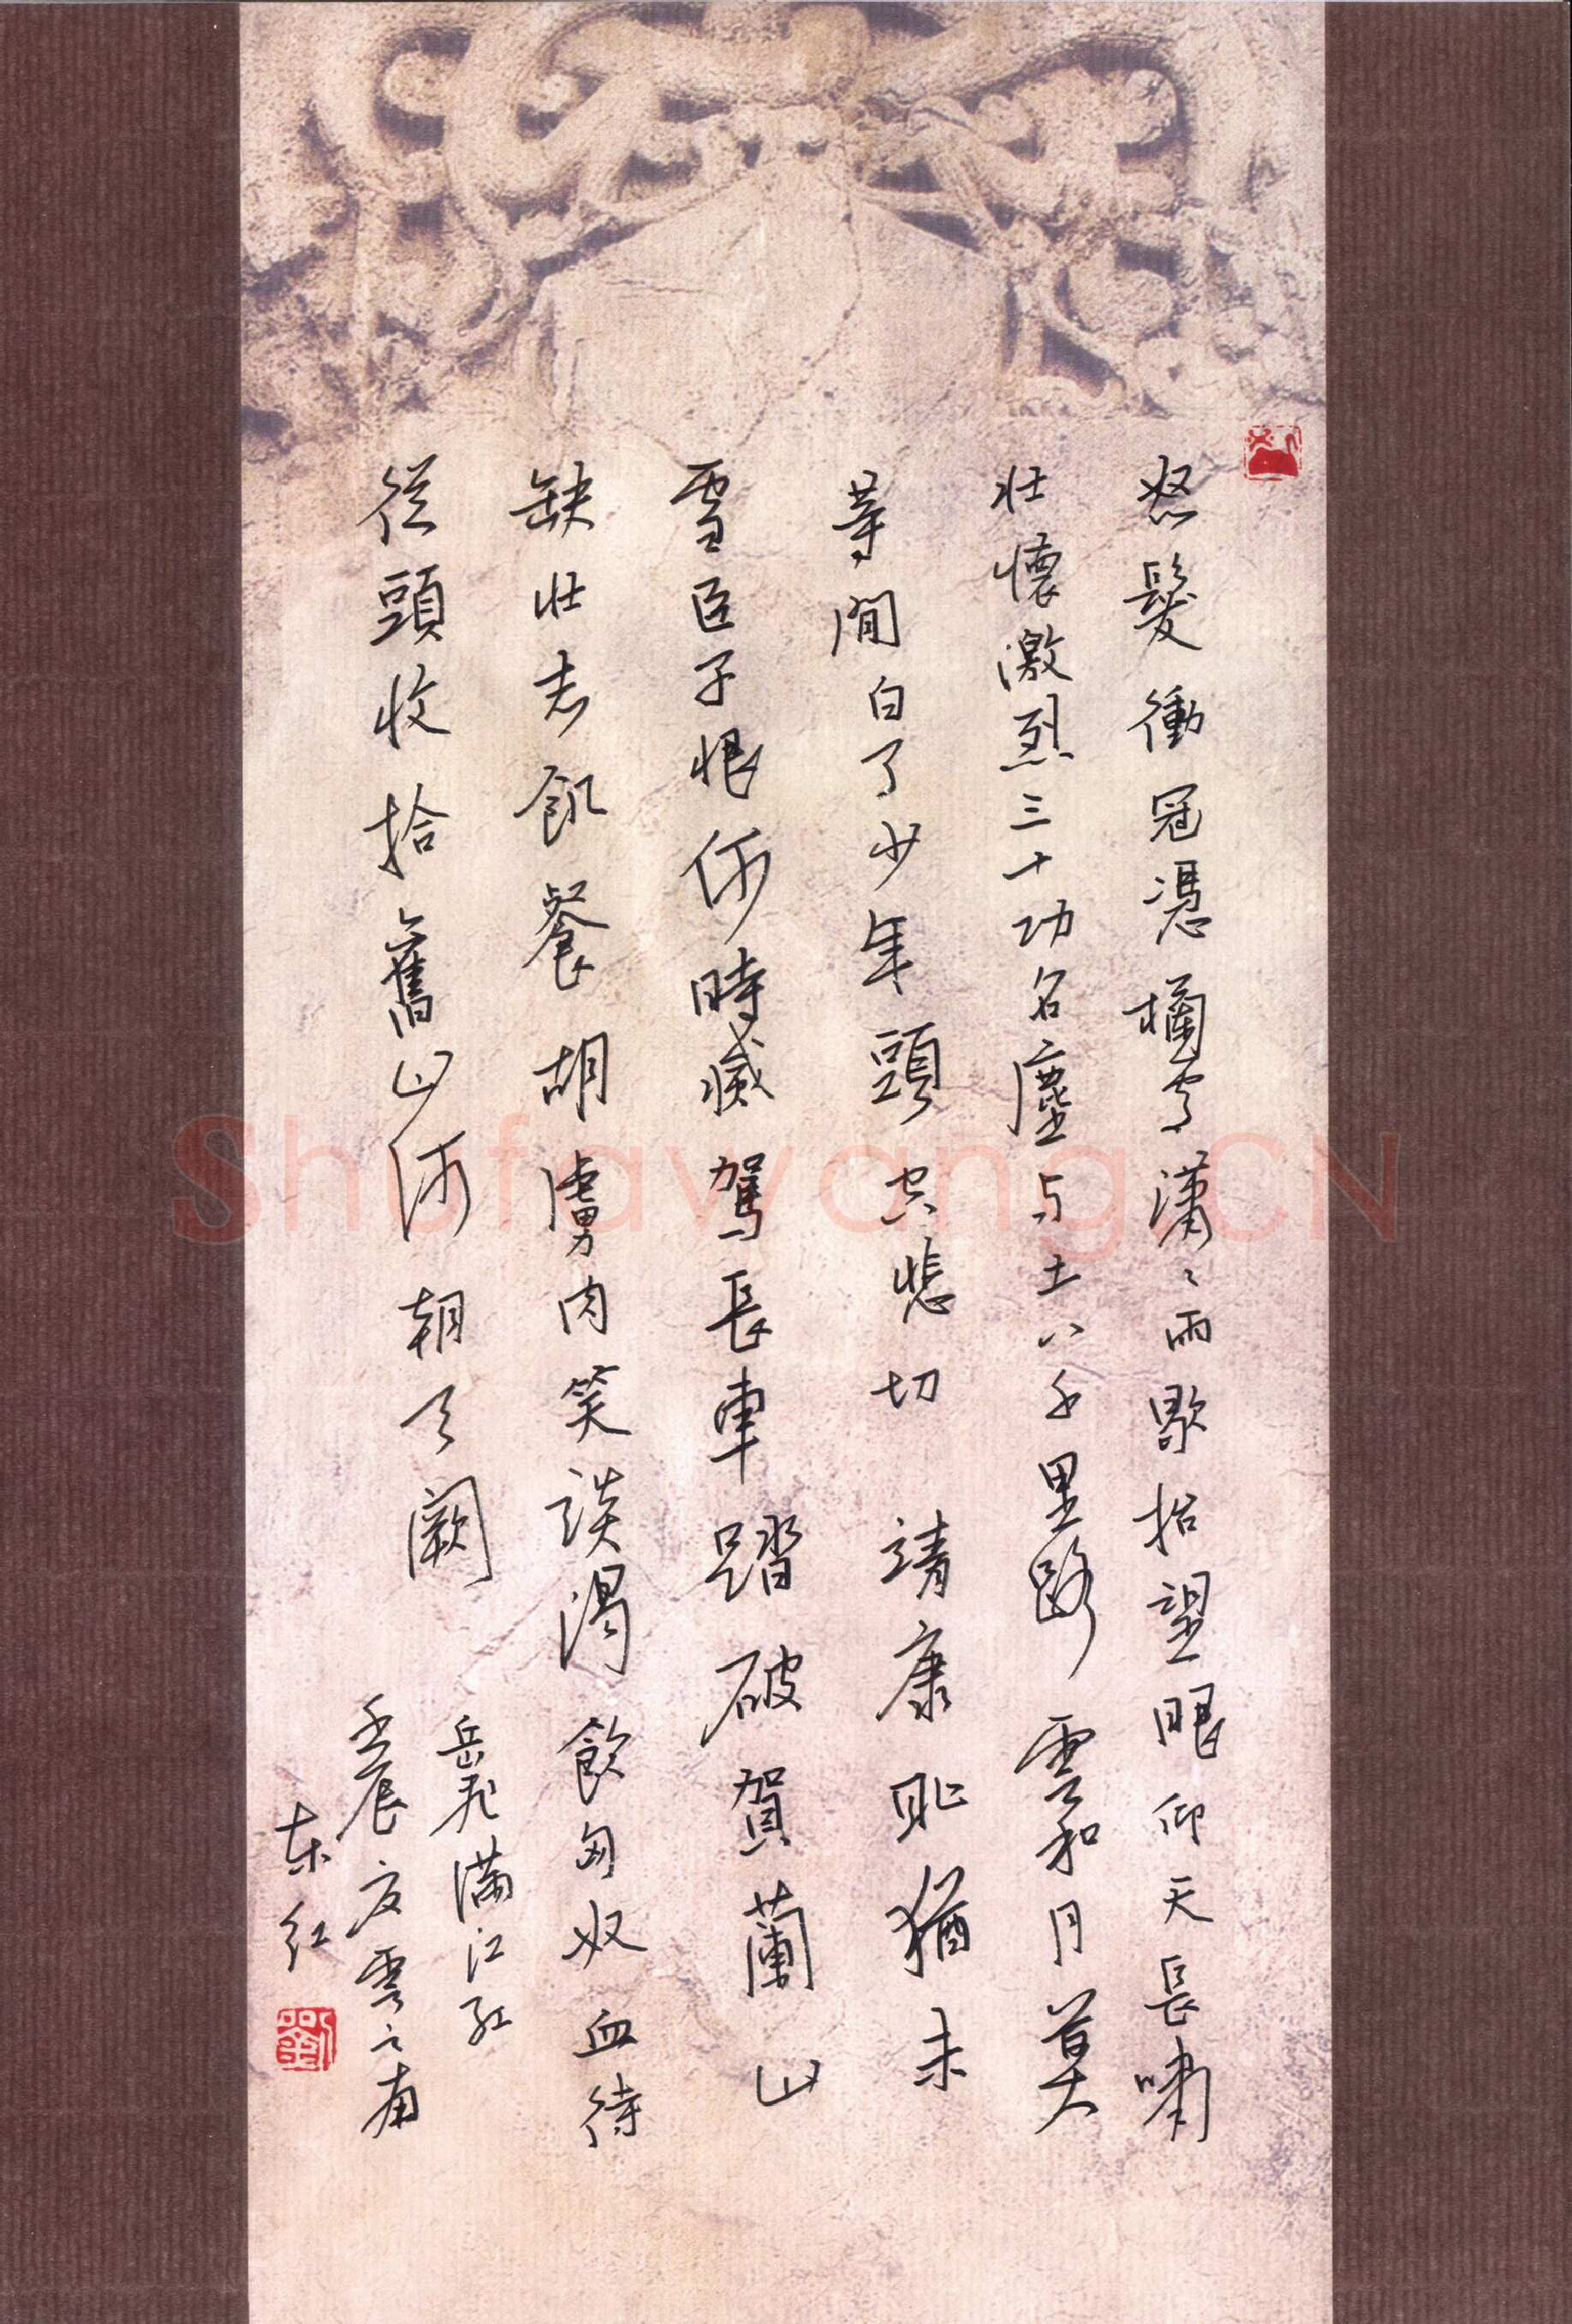 怒髮衝冠憑欄處瀟〻雨歇抬望眼仰天長嘯
壯懷激烈三十功名塵与土八千里路雲和月莫
等閒白了少年頭空悲切 靖康恥猶未
雪臣子恨何時滅駕長車踏破賀蘭山
缺壯志飢餐胡虜肉笑談渴飲匈奴血待
從頭收拾舊山河朝天闕
岳飛滿江紅
壬辰夏雲之南
东红
劉
Shufawang.CN